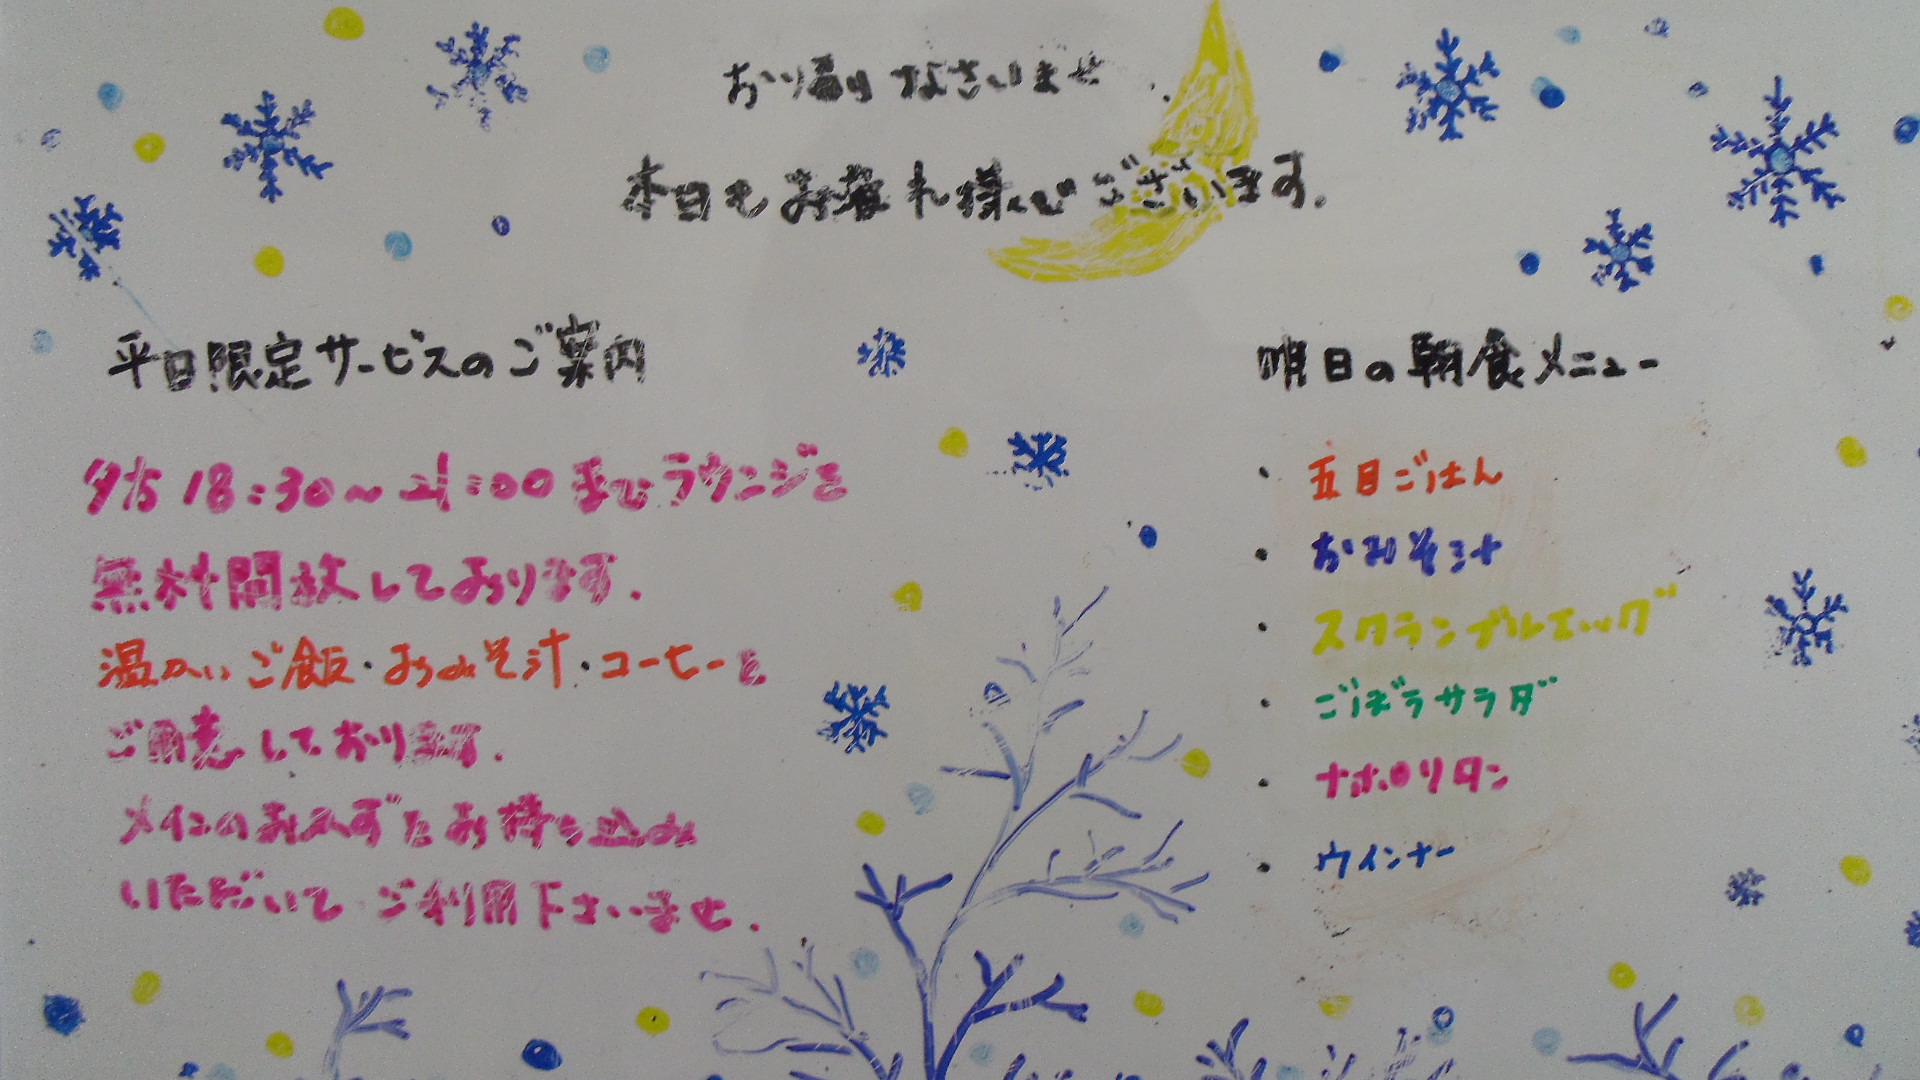 お帰りなさいませ
本日もお疲れ様でございます。
平日限定サービスのご案内
夕方18:30～21:00までラウンジを
無料開放しております。
温かいご飯・おみそ汁・コーヒーを
ご用意しております。
メインのおかずをお持ち込み
いただいてご利用下さいませ。
明日の朝食メニュー
・五目ごはん
・おみそ汁
・スクランブルエッグ
・ごぼうサラダ
・ナポリタン
・ウインナー